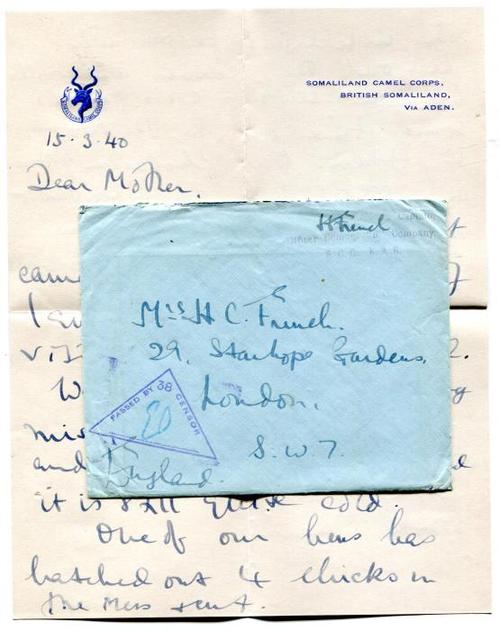 SOMALILAND CAMEL CORPS,
BRITISH SOMALILAND,
VIA ADEN.
15·3·40
Dear Mother,
came
HFrench
Captain
Company,
Mrs H C. French.
29, Stanhope Gardens,
London.
S. W 7.
England.
PASSED BY 38 CENSOR
W
mis
and
it is still quite cold.
One of our hens has
hatched out 4 chicks in
the Mess tent.